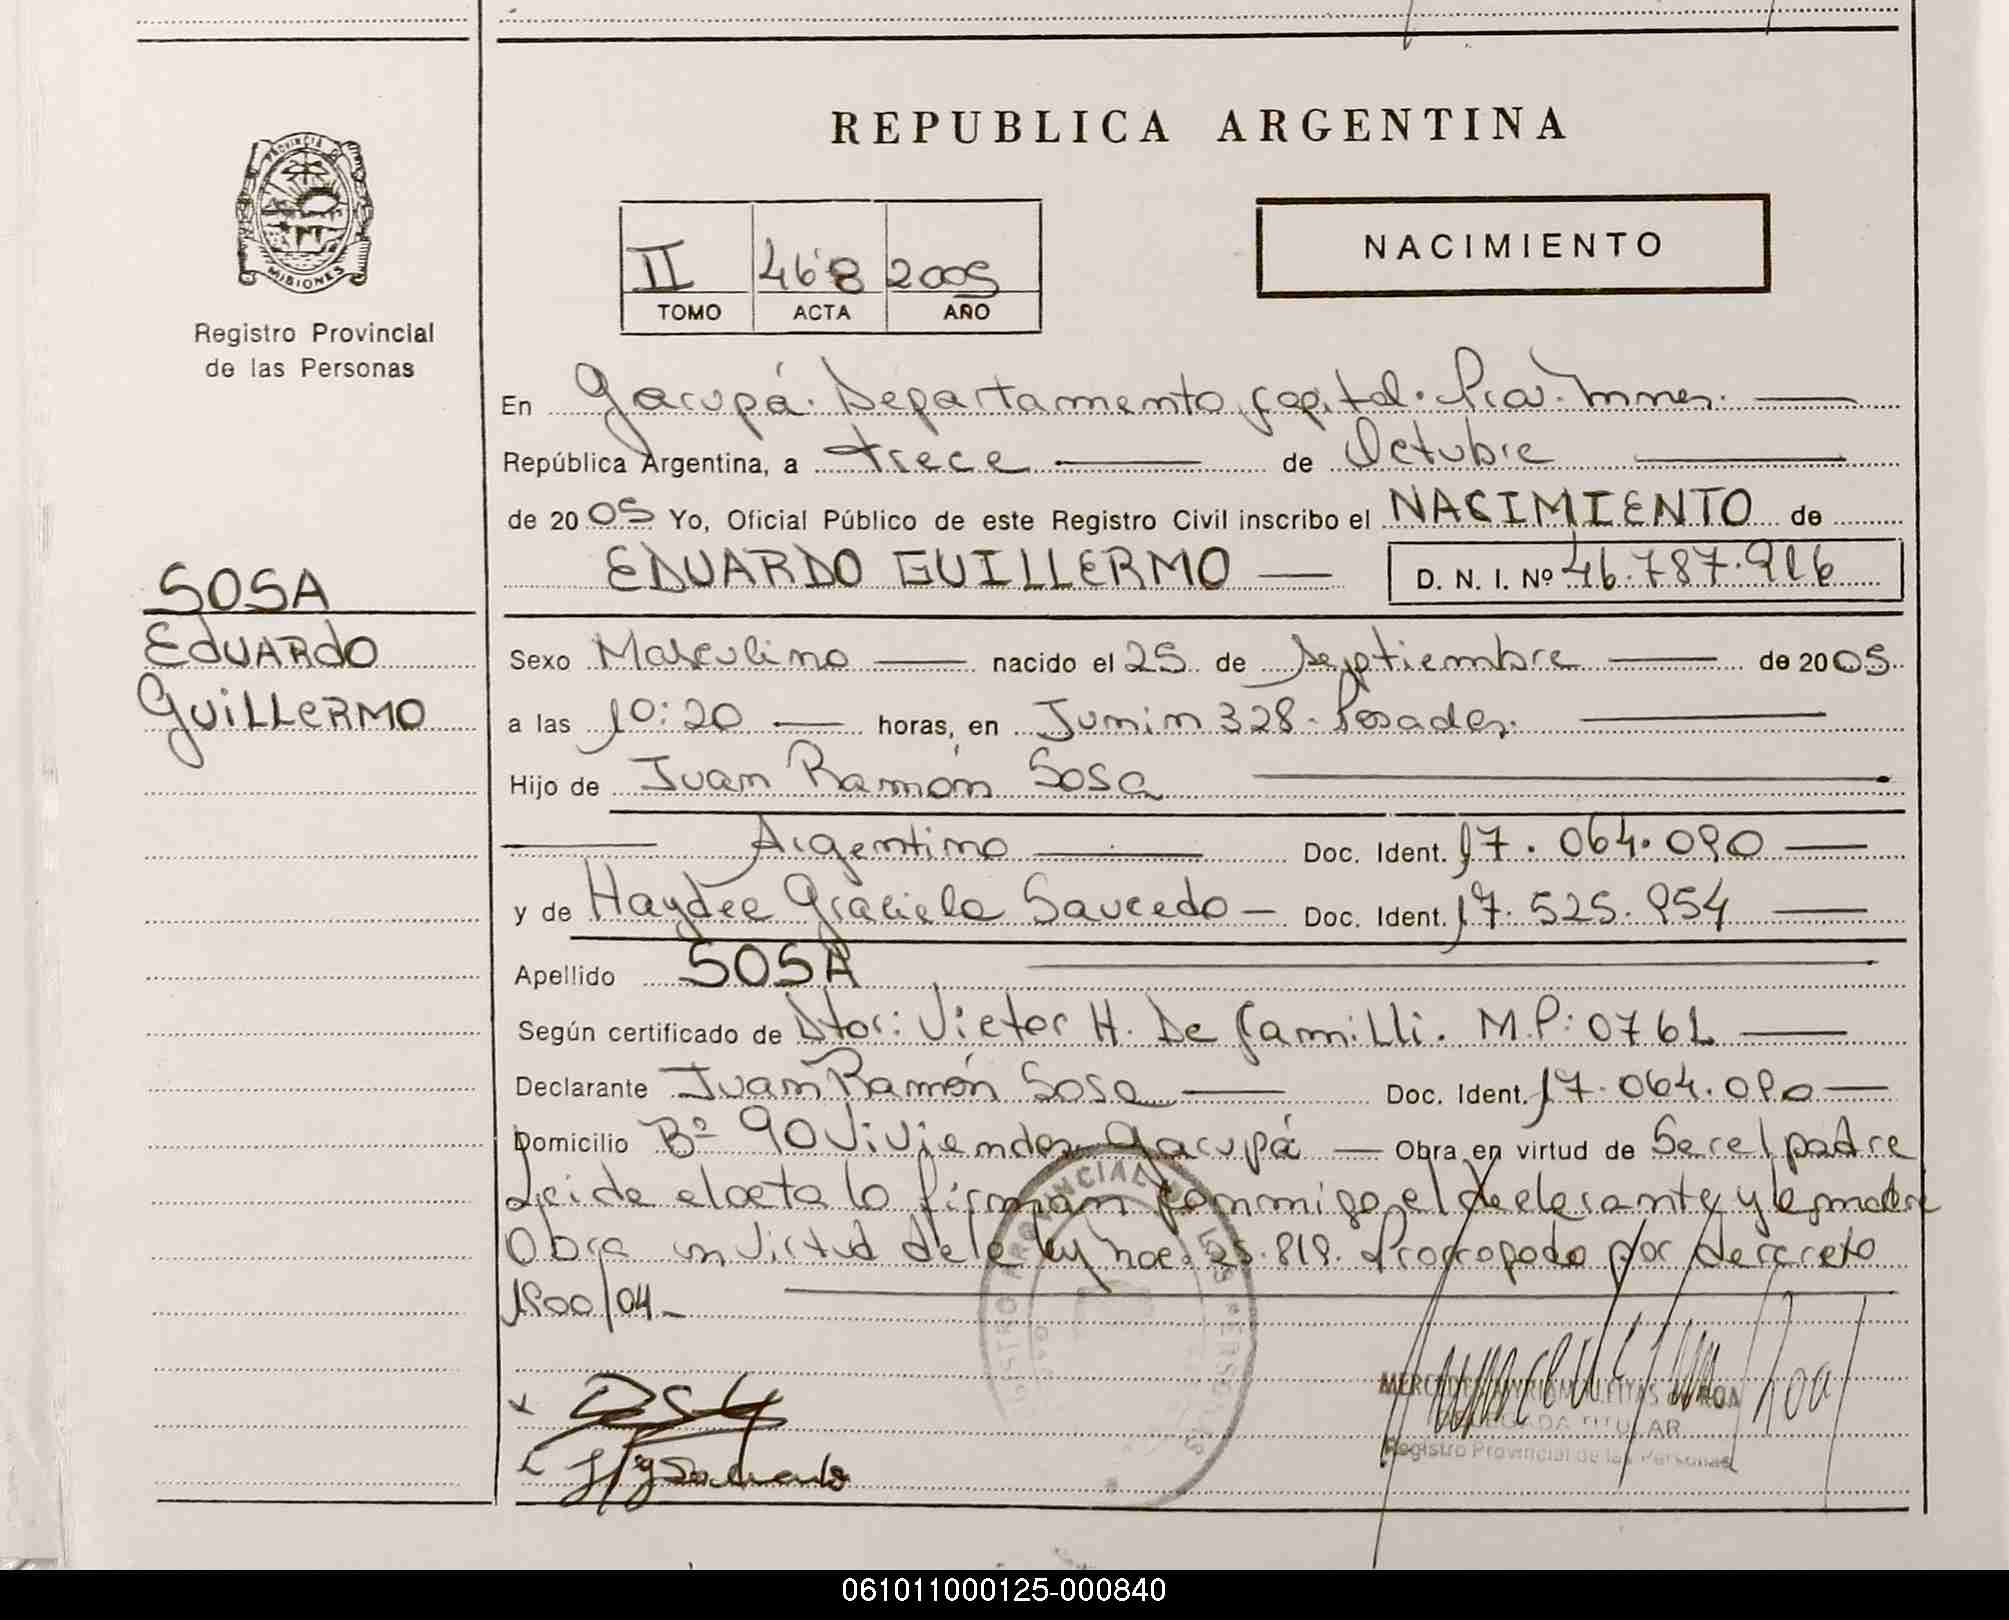 REPUBLICA ARGENTINA
PROVINCIA DE MISIONES
Registro Provincial
de las Personas
II 468 2005
TOMO ACTA AÑO
NACIMIENTO
En Garupá. Departamento Capital. Prov. Mnes.
República Argentina, a trece de Octubre
de 2005 Yo, Oficial Público de este Registro Civil inscribo el NACIMIENTO de
EDUARDO GUILLERMO D. N. I. Nº 46.787.916
SOSA
Eduardo
Guillermo
Sexo Masculino nacido el 25 de Septiembre de 2005
a las 10:20 horas, en Junin 328. Posadas.
Hijo de Juan Ramón Sosa
Argentino Doc. Ident. 17.064.090
y de Haydee Graciela Saucedo Doc. Ident. 17.525.954
Apellido SOSA
Según certificado de Dtor: Victor H. De Camilli. M.P: 0761
Declarante Juan Ramón Sosa Doc. Ident. 17.064.090
Domicilio Bº 90 Viviendas Garupá Obra en virtud de Ser el padre
Leida el acta lo firman conmigo el declarante y la madre
Obra en virtud de la ley nac. 25.819. Prorrogada por decreto
1900/04
REGISTRO PROVINCIAL DE LAS PERSONAS
DELEGADA TITULAR
Registro Provincial de las Personas
061011000125-000840